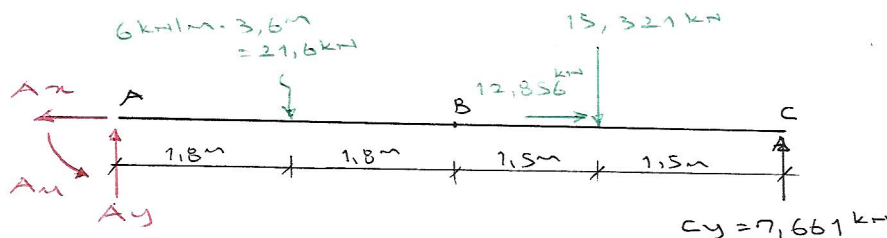 6 kN/m · 3,6 m
= 21,6 kN
15, 321 kN
12,856 kN
Ax
A
B
C
1,8 m
1,8 m
1,5 m
1,5 m
AM
Ay
Cy = 7,661 kN